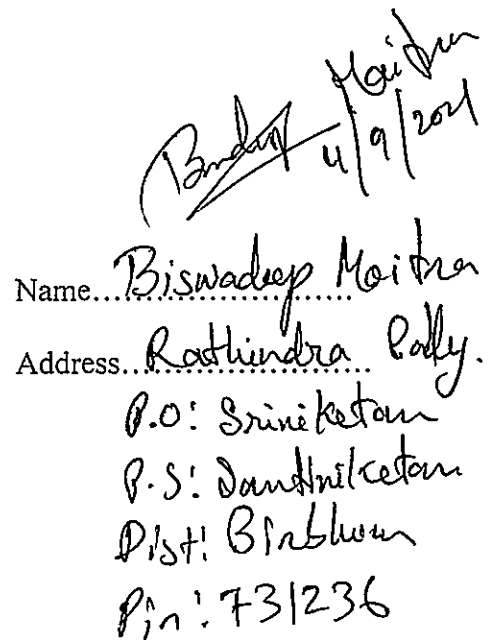 Biswadeep Moitra
4/9/2021
Name....Biswadeep Moitra
Address....Rathindra Pally.
P.O: Sriniketan
P.S: Santiniketan
Dist: Birbhum
Pin: 731236